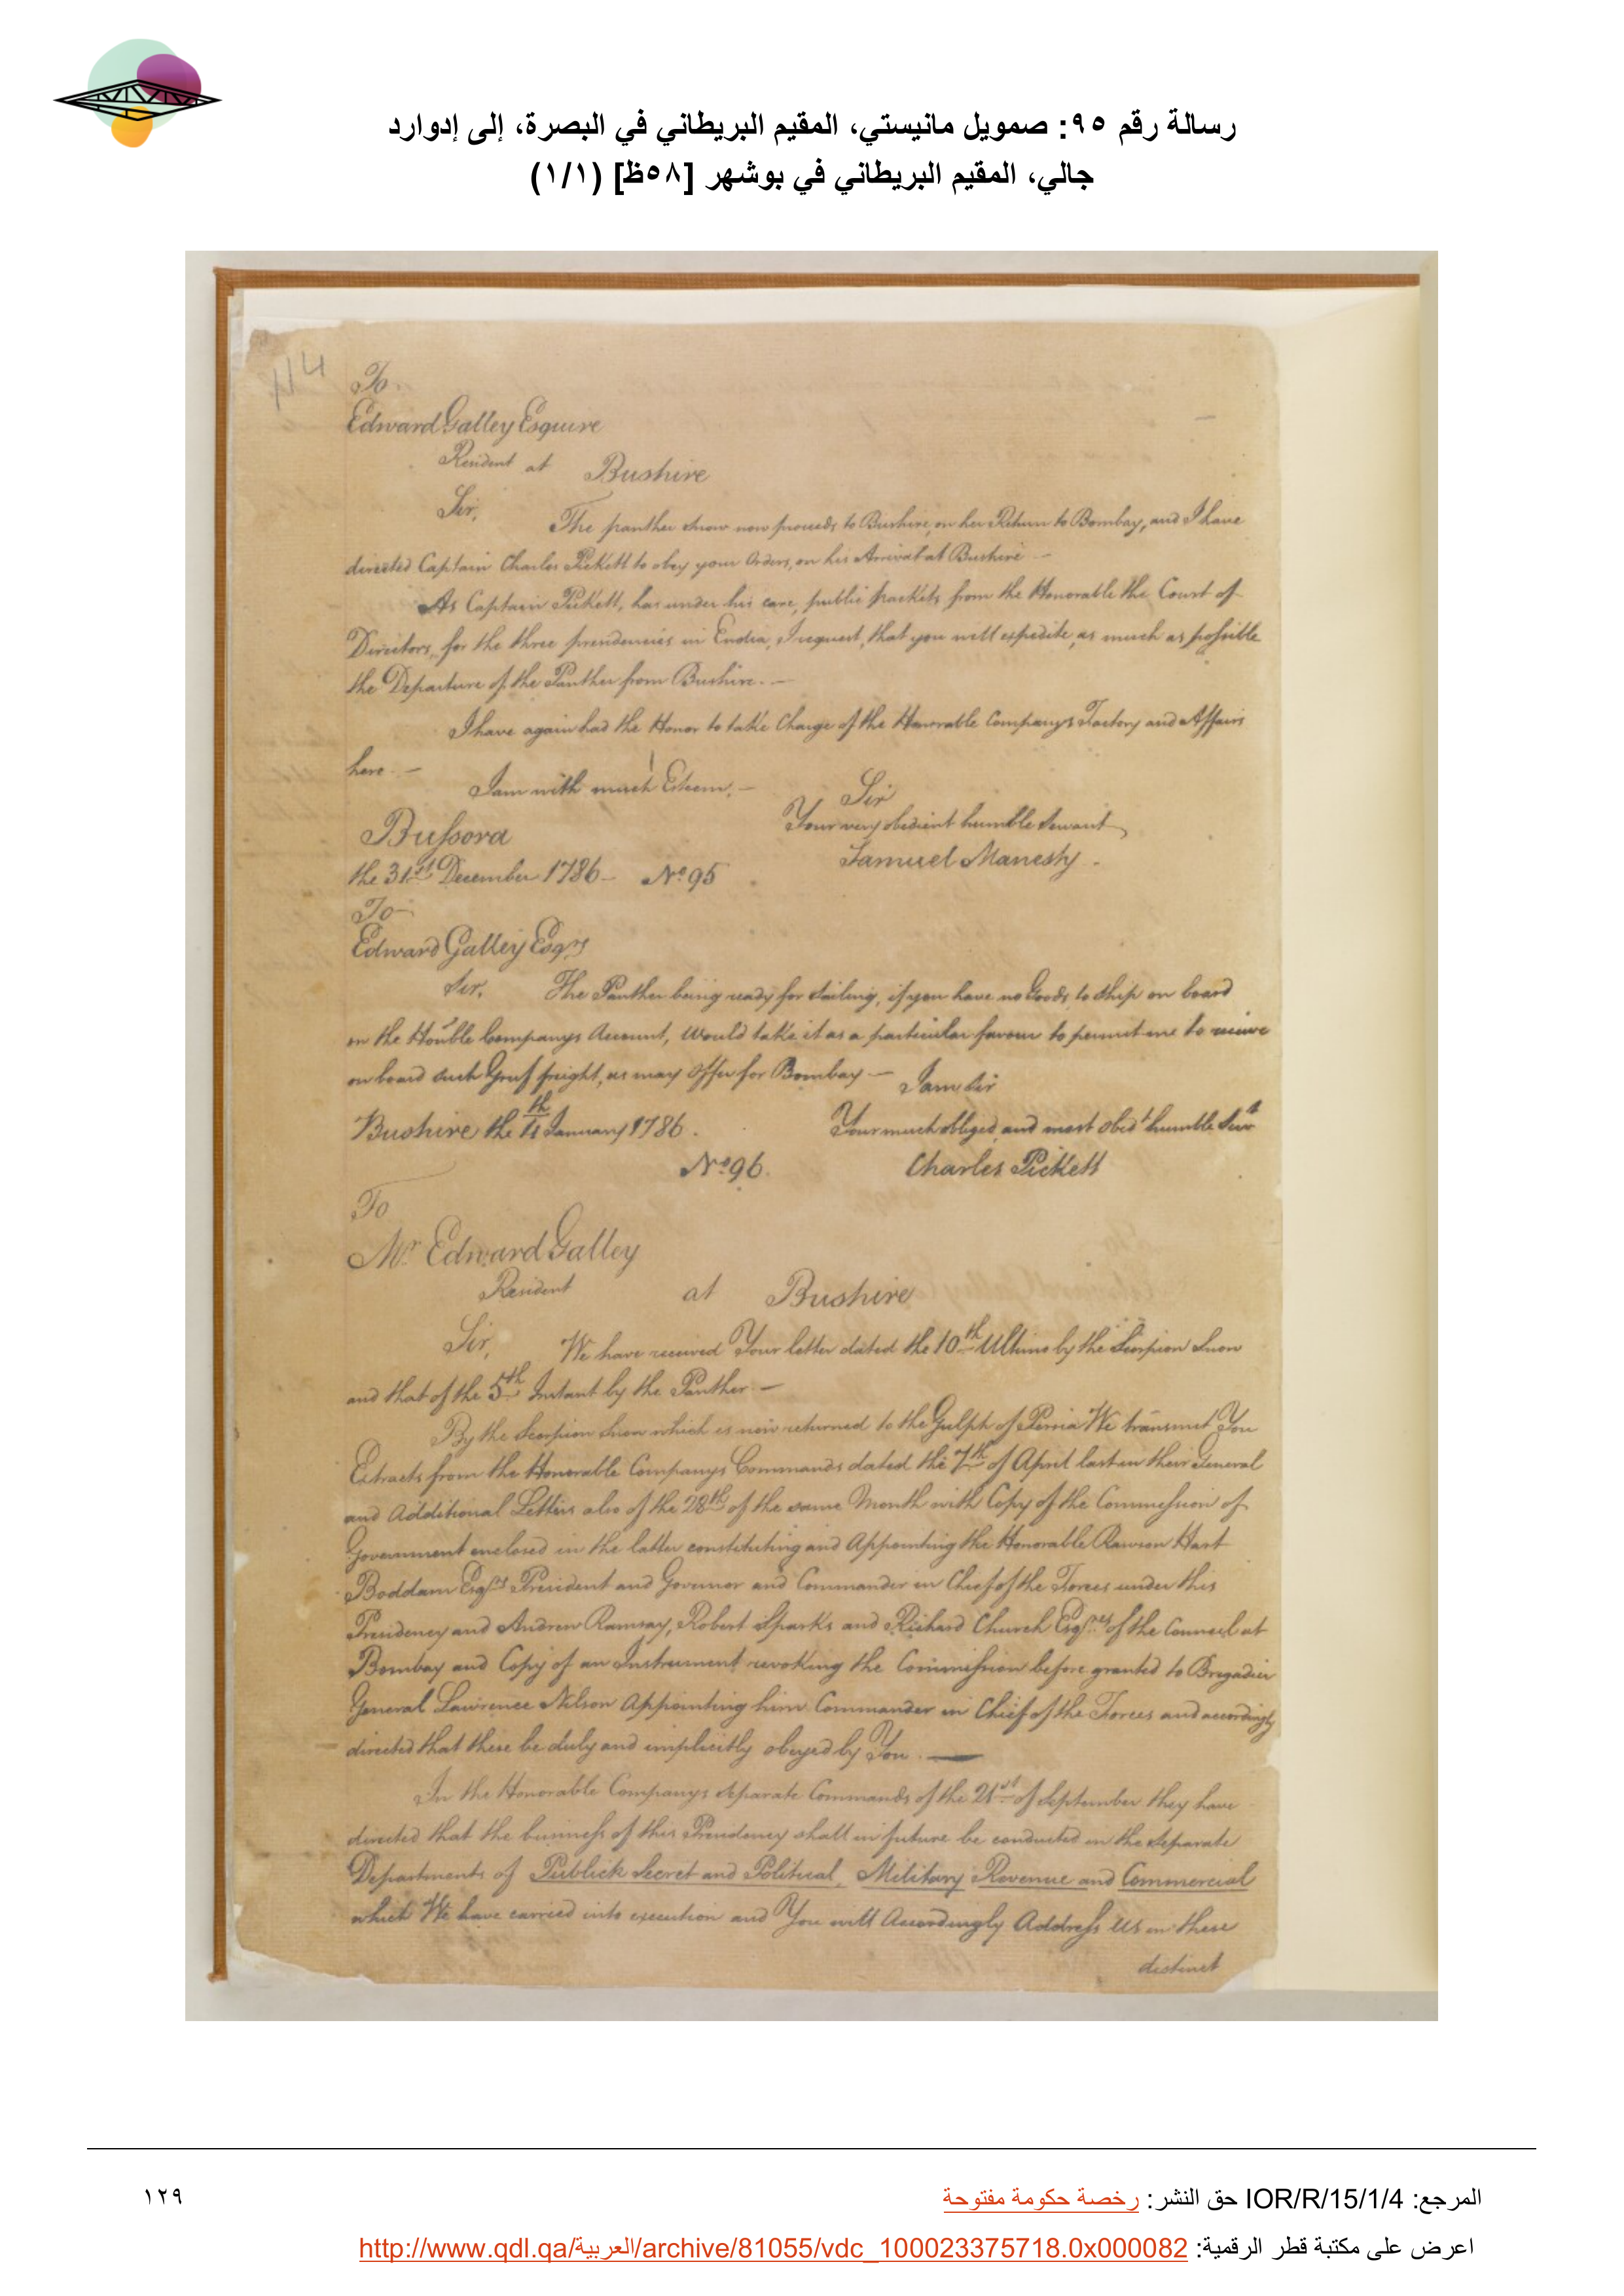 رسالة رقم ٩٥: صمويل مانيستي، المقيم البريطاني في البصرة، إلى إدوارد
جالي، المقيم البريطاني في بوشهر [٥٨ظ] (١/١)
114
To
Edward Galley Esquire
Resident at Bushire
Sir,
The panther Snow now proceeds to Bushire, on her Return to Bombay, and I have
directed Captain Charles Pickett to obey your Orders, on his Arrival at Bushire —
As Captain Pickett, has under his care, public packets from the Honorable the Court of
Directors, for the three presidencies in India, I request, that you will expedite, as much as possible
the Departure of the Panther from Bushire. —
I have again had the Honor to take Charge of the Honorable Companys Factory and Affairs
here. —
I am with much Esteem, —
Sir
Your very obedient humble Servant
Samuel Manesty.
Bussora
the 31st December 1786 — No 95
To
Edward Galley Esqr
Sir, The Panther being ready for Sailing, if you have no Goods to ship on board
on the Honble Companys Account, would take it as a particular favour to permit me to receive
on board such Gruf freight, as may offer for Bombay — I am Sir
Bushire the January 1786. Your much obliged, and most obedt humble Servt
No 96. Charles Pickett
To
Mr Edward Galley
Resident at Bushire
Sir, We have received Your letter dated the 10th Ultimo by the Scorpion Snow
and that of the 5th Instant by the Panther —
By the Scorpion Snow which is now returned to the Gulph of Persia We transmit You
Extracts from the Honorable Companys Commands dated the 7th of April last in their General
and Additional Letters also of the 28th of the same Month with Copy of the Commission of
Government enclosed in the latter constituting and Appointing the Honorable Rawson Hart
Boddam Esqr President and Governor and Commander in Chief of the Forces under this
Presidency and Andrew Ramsay, Robert Sparks and Richard Church Esqres of the Council at
Bombay and Copy of an Instrument revoking the Commission before granted to Brigadier
General Lawrence Nilson Appointing him Commander in Chief of the Forces and accordingly
directed that these be duly and implicitly obeyed by You. —
In the Honorable Companys separate Commands of the 21st of September they have
directed that the business of this Presidency shall in future be conducted in the separate
Departments of Publick Secret and Political, Military Revenue and Commercial
which We have carried into execution and You will Accordingly Address Us in these
distinct
المرجع: IOR/R/15/1/4 حق النشر: رخصة حكومة مفتوحة
١٢٩
اعرض على مكتبة قطر الرقمية: http://www.qdl.qa/العربية/archive/81055/vdc_100023375718.0x000082